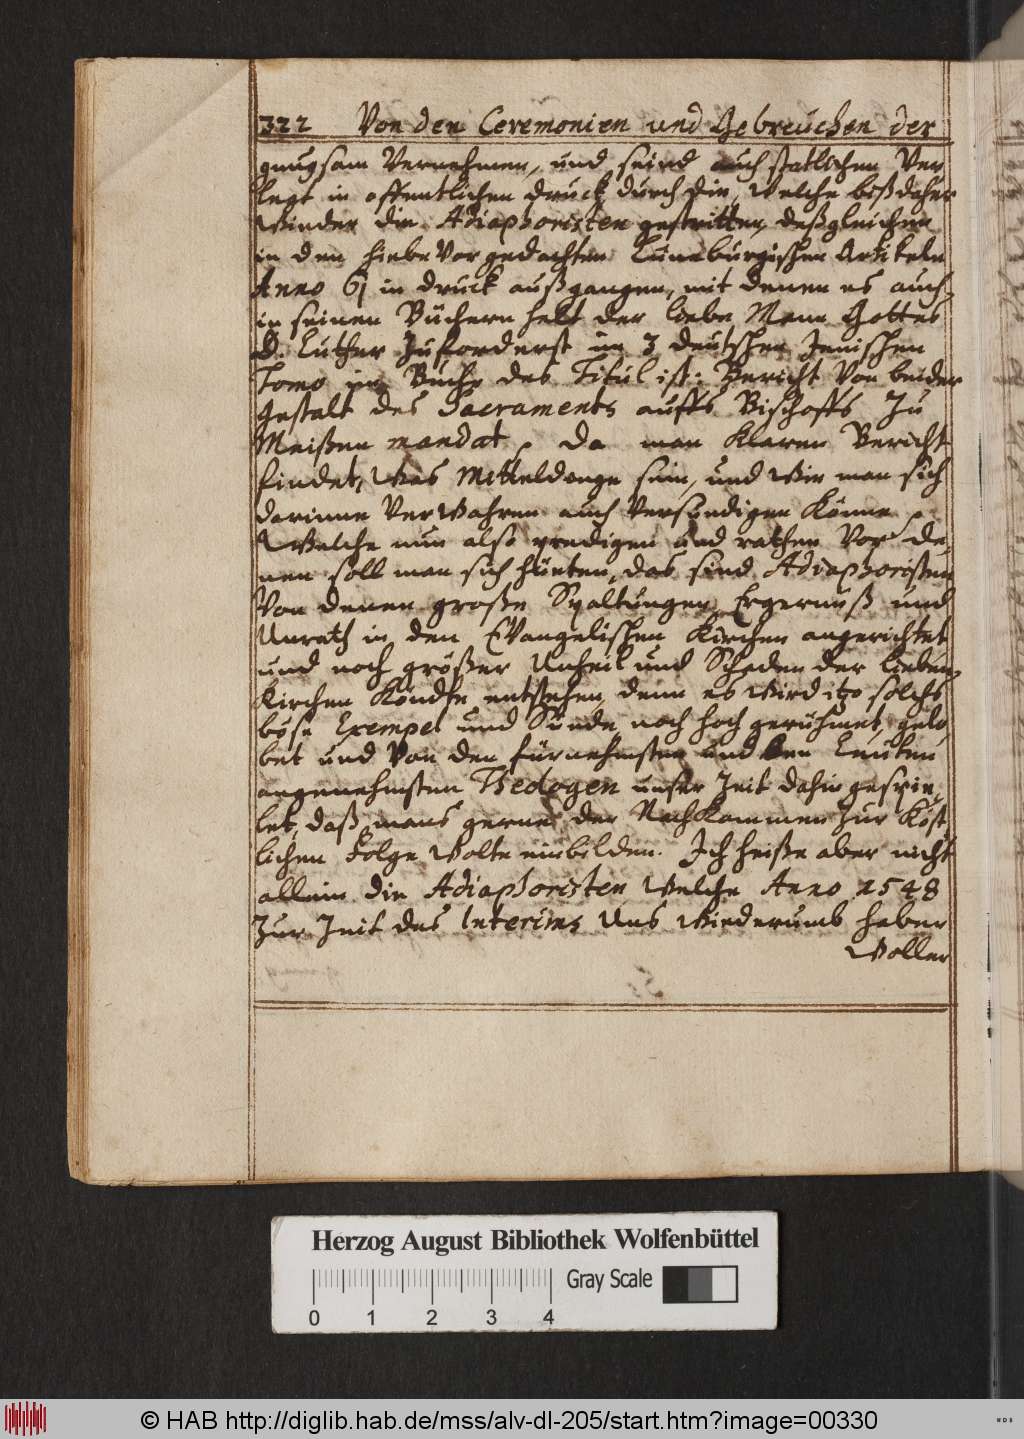 322 Von den Ceremonien und Gebreuchen der
gnugsam Vernehmen, und seind auch statlichen Ver
legt in offentlichen druck durch die, Welche bißdaher
Wieder die Adiaphoristen gestritten, deßgleichen
in den hiebeVorgedachten Lüneburgischen Artikeln
Anno 61 in druck außgangen, mit denen es auch
in seinen Büchern helt der liebe Mann Gottes
D. Luther Zuforderst im 3 deutschen Jenischen
Tomo im Buche des Titul ist: Bericht Von beider
Gestalt des Sacraments auffs Bischoffs Zu
Meißen mandat, Da man klaren Bericht
findet, Was Mitteldinge sein, und Wie man sich
darinne VerWahren auch Versündigen Könne.
Welche nun also predigen und rathen Vor de,
nen soll man sich hüeten, das sind Adiaphoristen
Von denen große Spaltungen Ergernuß und
Unrath in den EVangelischen Kirchen angerichtet
und noch größer Unheil und Schaden der lieben
Kirchen Köndte entstehen, denn es Wird itzo solchs
böse Exempel und Sünde noch hoch gerühmet, gelo,
bet und Von den fürnehmsten und den Leuten
angenehmsten Theologen unser Zeit dahin gespie,
let, daß mans gerne der NachKommen zur Köst,
lichen Folge Wolte einbilden. Ich heiße aber nicht
allein die Adiaphoristen Welche Anno 1548
Zur Zeit des Interims Uns Wiederumb haben
Wollen
Herzog August Bibliothek Wolfenbüttel
Gray Scale
0 1 2 3 4
© HAB http://diglib.hab.de/mss/alv-dl-205/start.htm?image=00330